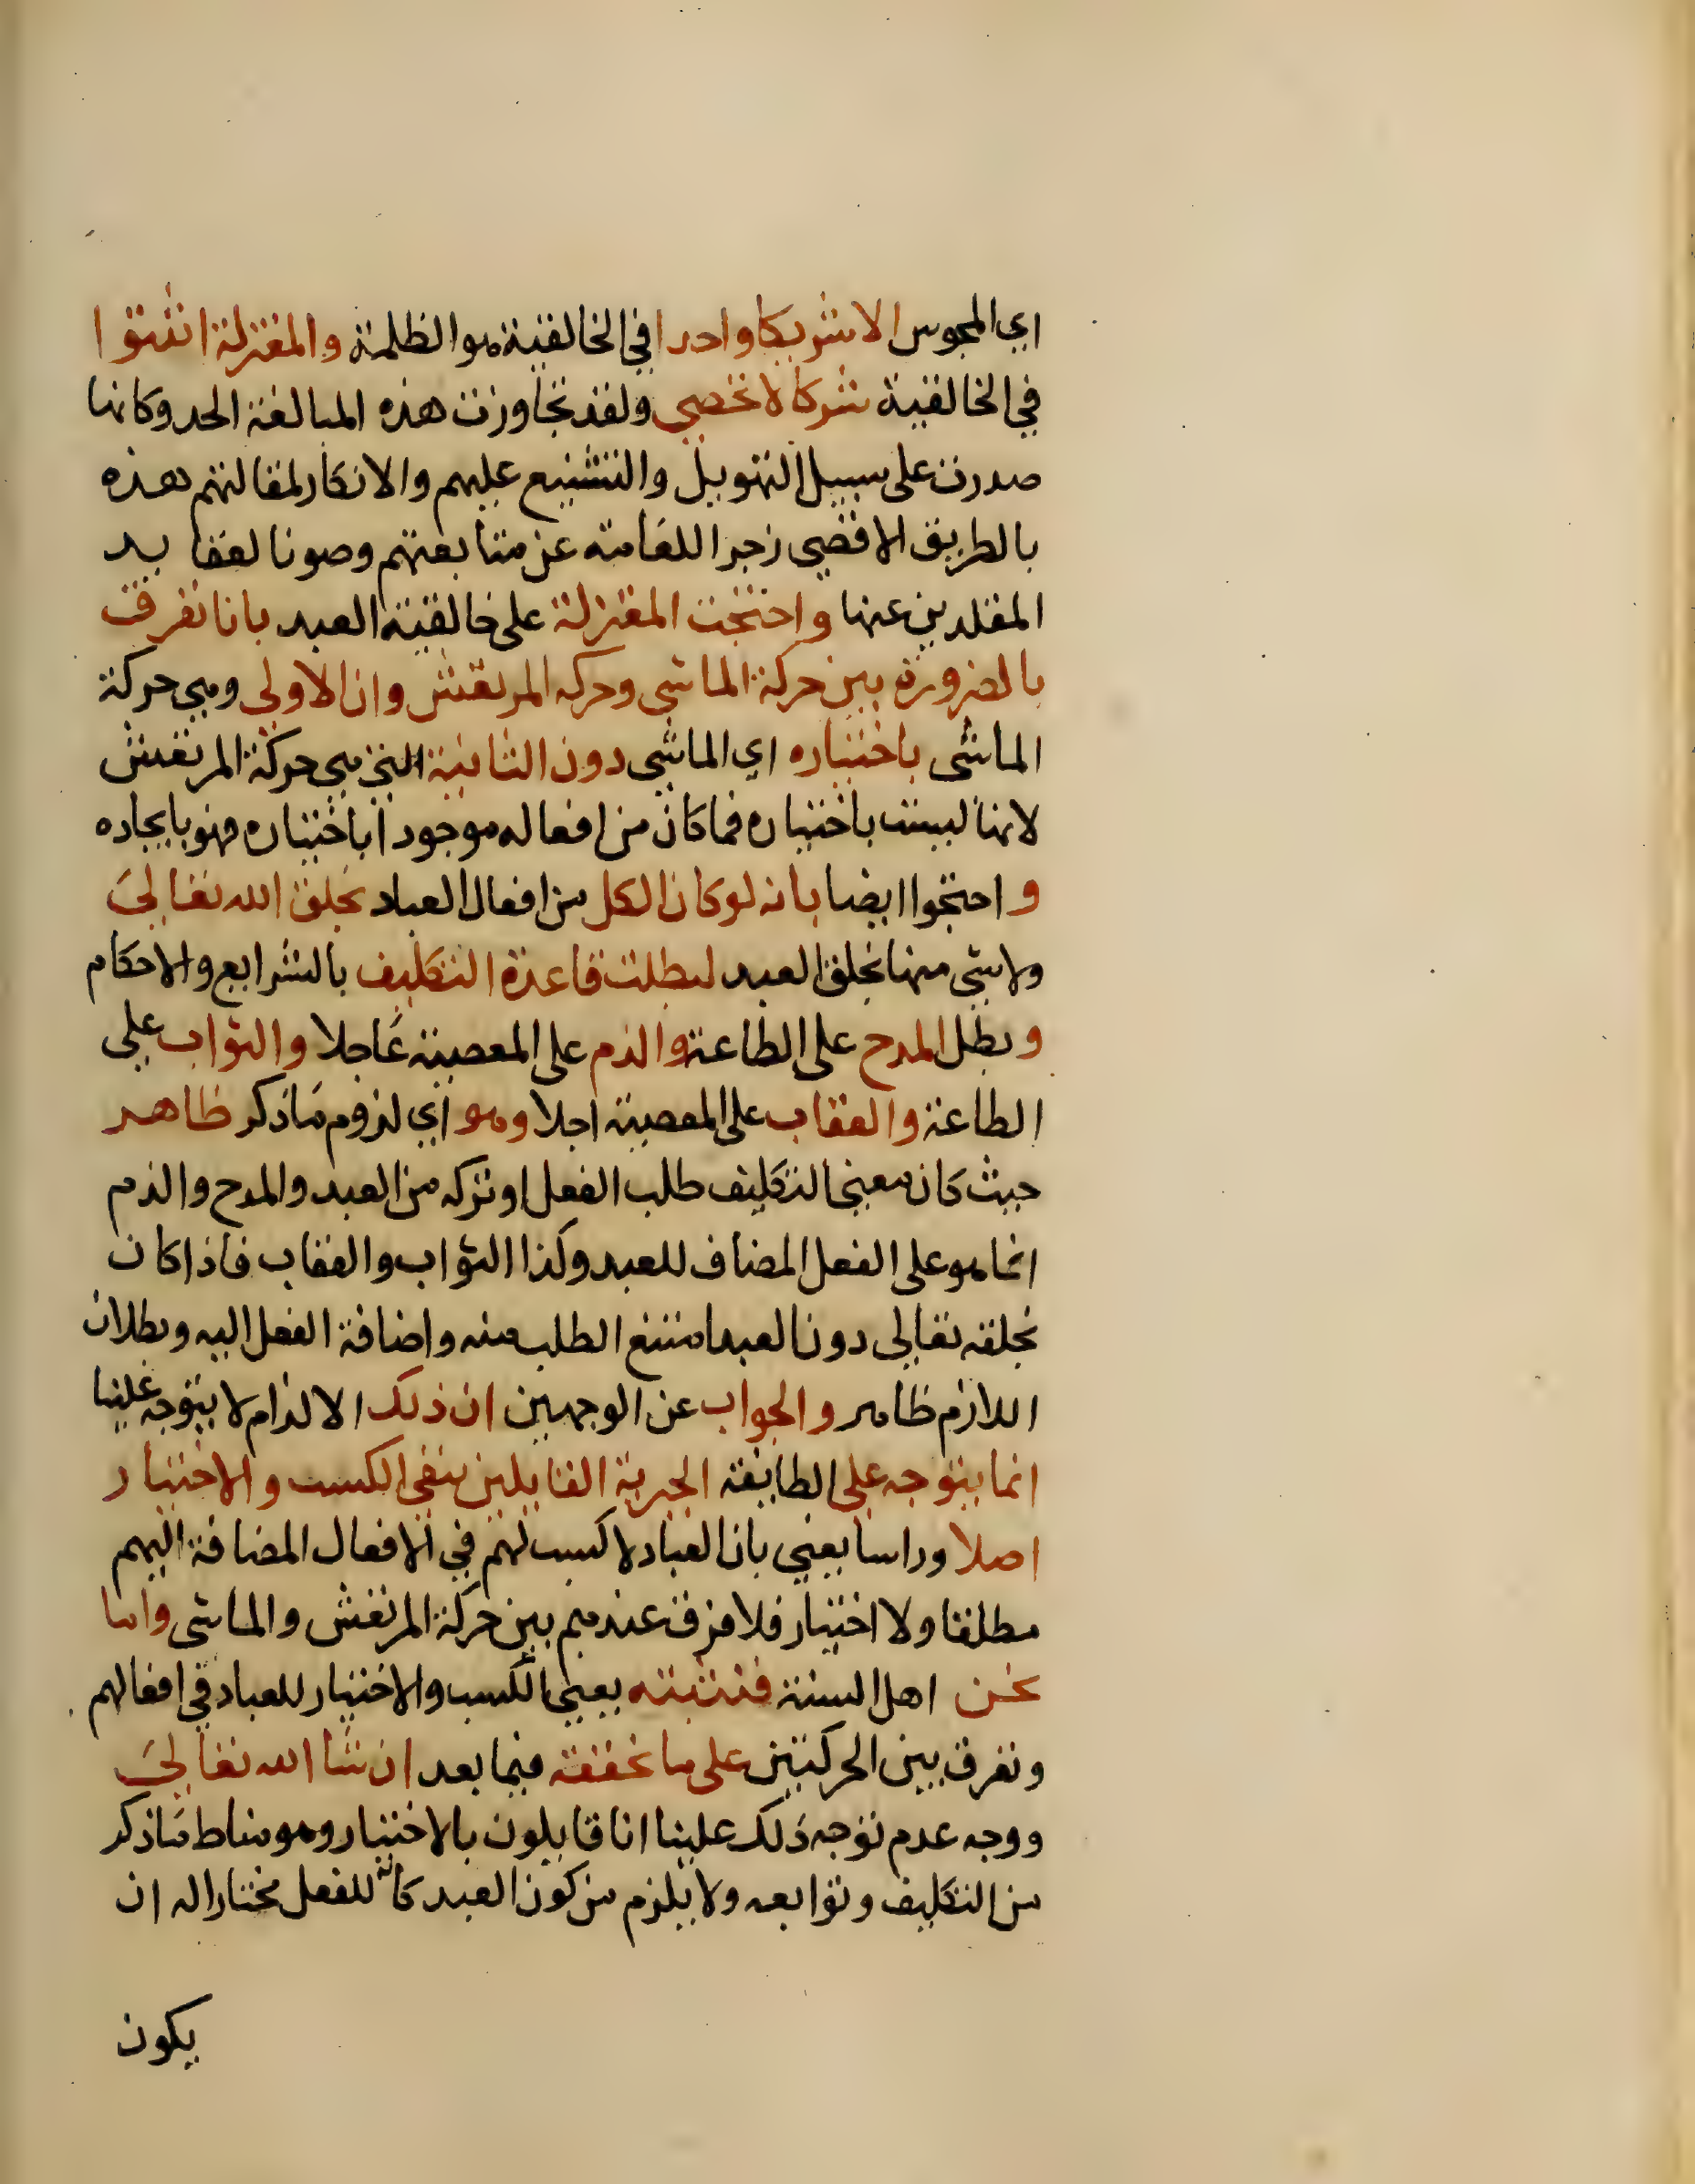 اي المجوس الا شريكا واحدا في الخالقية هو الظلمة والمعتزلة اثبتوا
في الخالقية شركا لا تحصى ولقد تجاوزت هذه المبالغة الحد وكانها
صدرت على سبيل التهويل والتشنيع عليهم والانكار لمقالتهم هذه
بالطريق الاقصى زجرا للعامة عن متابعتهم وصونا لعقايد
المقلدين عنها واحتجت المعتزلة على خالقية العبد بانا نفرق
بالضرورة بين حركة الماشي وحركة المرتعش وان الاولى وهي حركة
الماشي باختياره اي الماشي دون الثانية التي هي حركة المرتعش
لانها ليست باختياره فما كان من افعاله موجودا باختياره فهو بايجاده
واحتجوا ايضا بانه لو كان الكل من افعال العباد بخلق الله تعالى
ولا شي منها بخلق العبد لبطلت قاعدة التكليف بالشرايع والاحكام
وبطل المدح على الطاعة والذم على المعصية عاجلا والثواب على
الطاعة والعقاب على المعصية اجلا وهو اي لزوم ما ذكر ظاهر
حيث كان معنى التكليف طلب الفعل او تركه من العبد والمدح والذم
انما هو على الفعل المضاف للعبد وكذا الثواب والعقاب فاذا كان
بخلقه تعالى دون العبد امتنع الطلب منه واضافة الفعل اليه وبطلان
اللازم ظاهر والجواب عن الوجهين ان ذلك الالزام لا يتوجه علينا
انما يتوجه على الطايفة الجبرية القايلين بنفي الكسب والاختيار
اصلا وراسا يعني بان العباد لا كسب لهم في الافعال المضافة اليهم
مطلقا ولا اختيار فلا فرق عندهم بين حركة المرتعش والماشي واما
نحن اهل السنة فنثبته يعني الكسب والاختيار للعباد في افعالهم
ونفرق بين الحركتين على ما نحققه فيما بعد ان شا الله تعالى
ووجه عدم توجه ذلك علينا انا قايلون بالاختيار وهو مناط ما ذكر
من التكليف وتوابعه ولا يلزم من كون العبد للفعل مختارا له ان
يكون